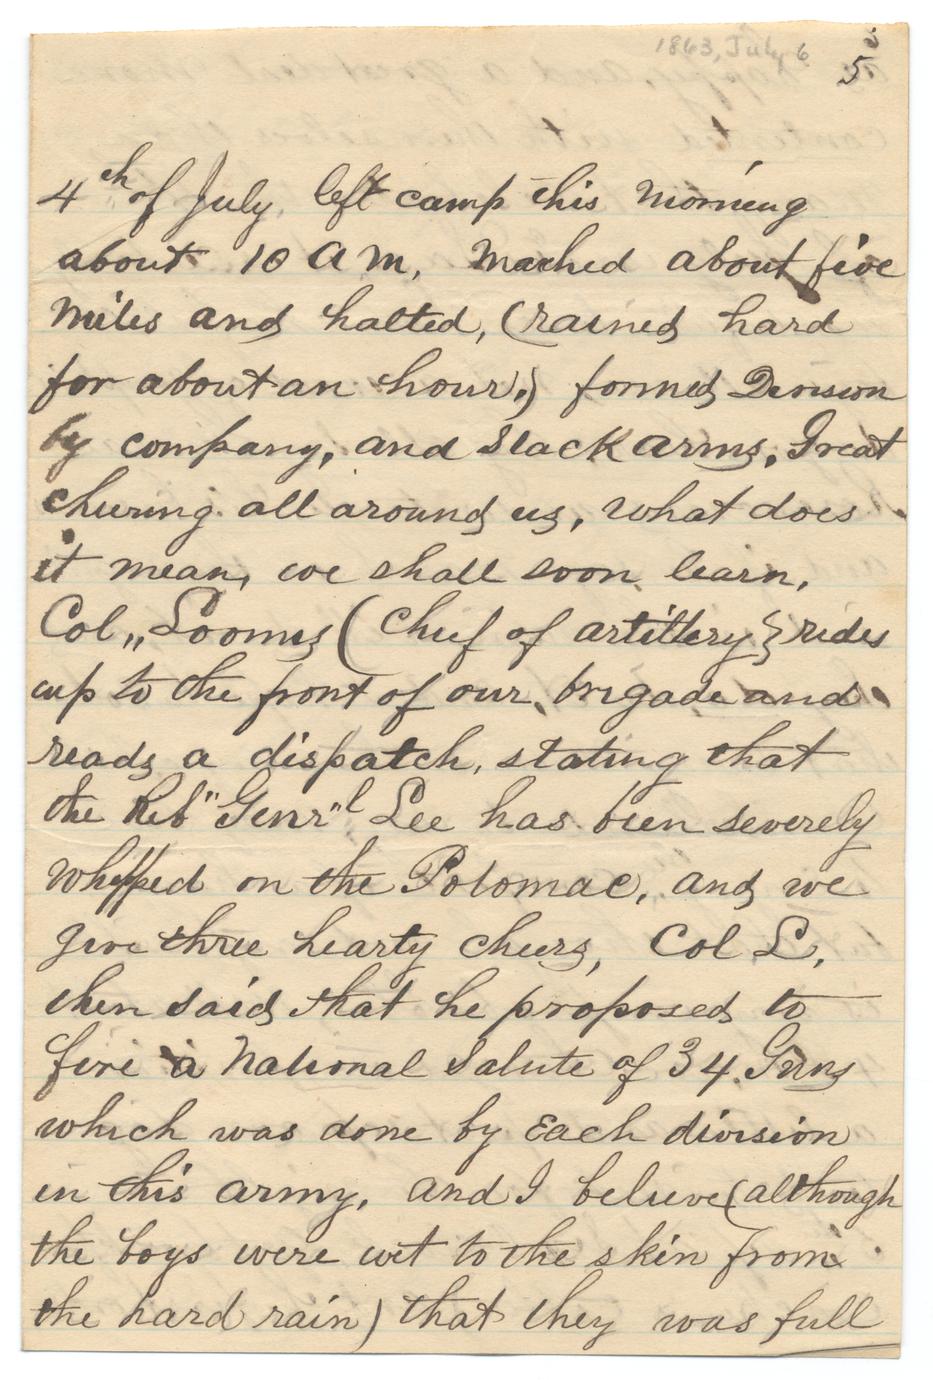 1863, July 6
5
4th of July, left camp this morning
about 10 A M, Marched about five
miles and halted, (rained hard
for about an hour,) formed Division
by company, and Stack arms, Great
chering all around us, what does
it mean, we shall soon learn,
Col,, Loomis (Cheif of artillery) rides
up to the front of our brigade and
reads a dispatch, stating that
the Reb" Genr"l Lee has been severely
whipped on the Potomac, and we
give three hearty cheers, Col L,
then said that he proposed to
fire a National Salute of 34 Guns
which was done by Each division
in this army, and I believe (although
the boys were wet to the skin from
the hard rain) that they was full